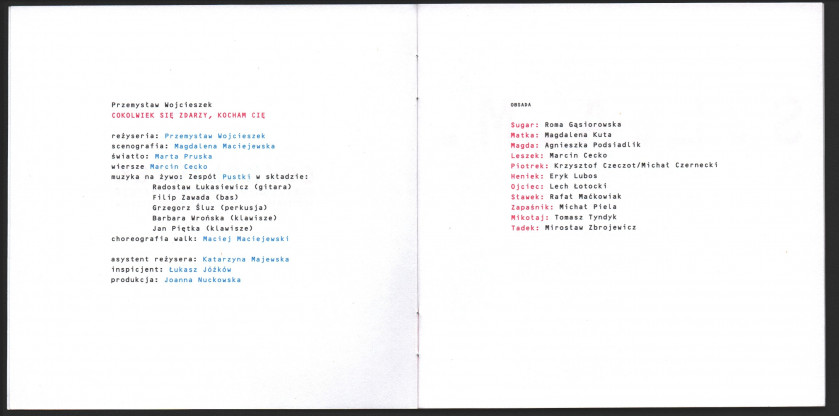 Przemysław Wojcieszek
COKOLWIEK SIĘ ZDARZY, KOCHAM CIĘ
reżyseria: Przemysław Wojcieszek
scenografia: Magdalena Maciejewska
światło: Marta Pruska
wiersze Marcin Cecko
muzyka na żywo: Zespół Pustki w składzie:
Radosław Łukasiewicz (gitara)
Filip Zawada (bas)
Grzegorz Śluz (perkusja)
Barbara Wrońska (klawisze)
Jan Piętka (klawisze)
choreografia walk: Maciej Maciejewski
asystent reżysera: Katarzyna Majewska
inspicjent: Łukasz Jóźków
produkcja: Joanna Nuckowska
OBSADA
Sugar: Roma Gąsiorowska
Matka: Magdalena Kuta
Magda: Agnieszka Podsiadlik
Leszek: Marcin Cecko
Piotrek: Krzysztof Czeczot/Michał Czernecki
Heniek: Eryk Lubos
Ojciec: Lech Łotocki
Sławek: Rafał Maćkowiak
Zapaśnik: Michał Piela
Mikołaj: Tomasz Tyndyk
Tadek: Mirosław Zbrojewicz